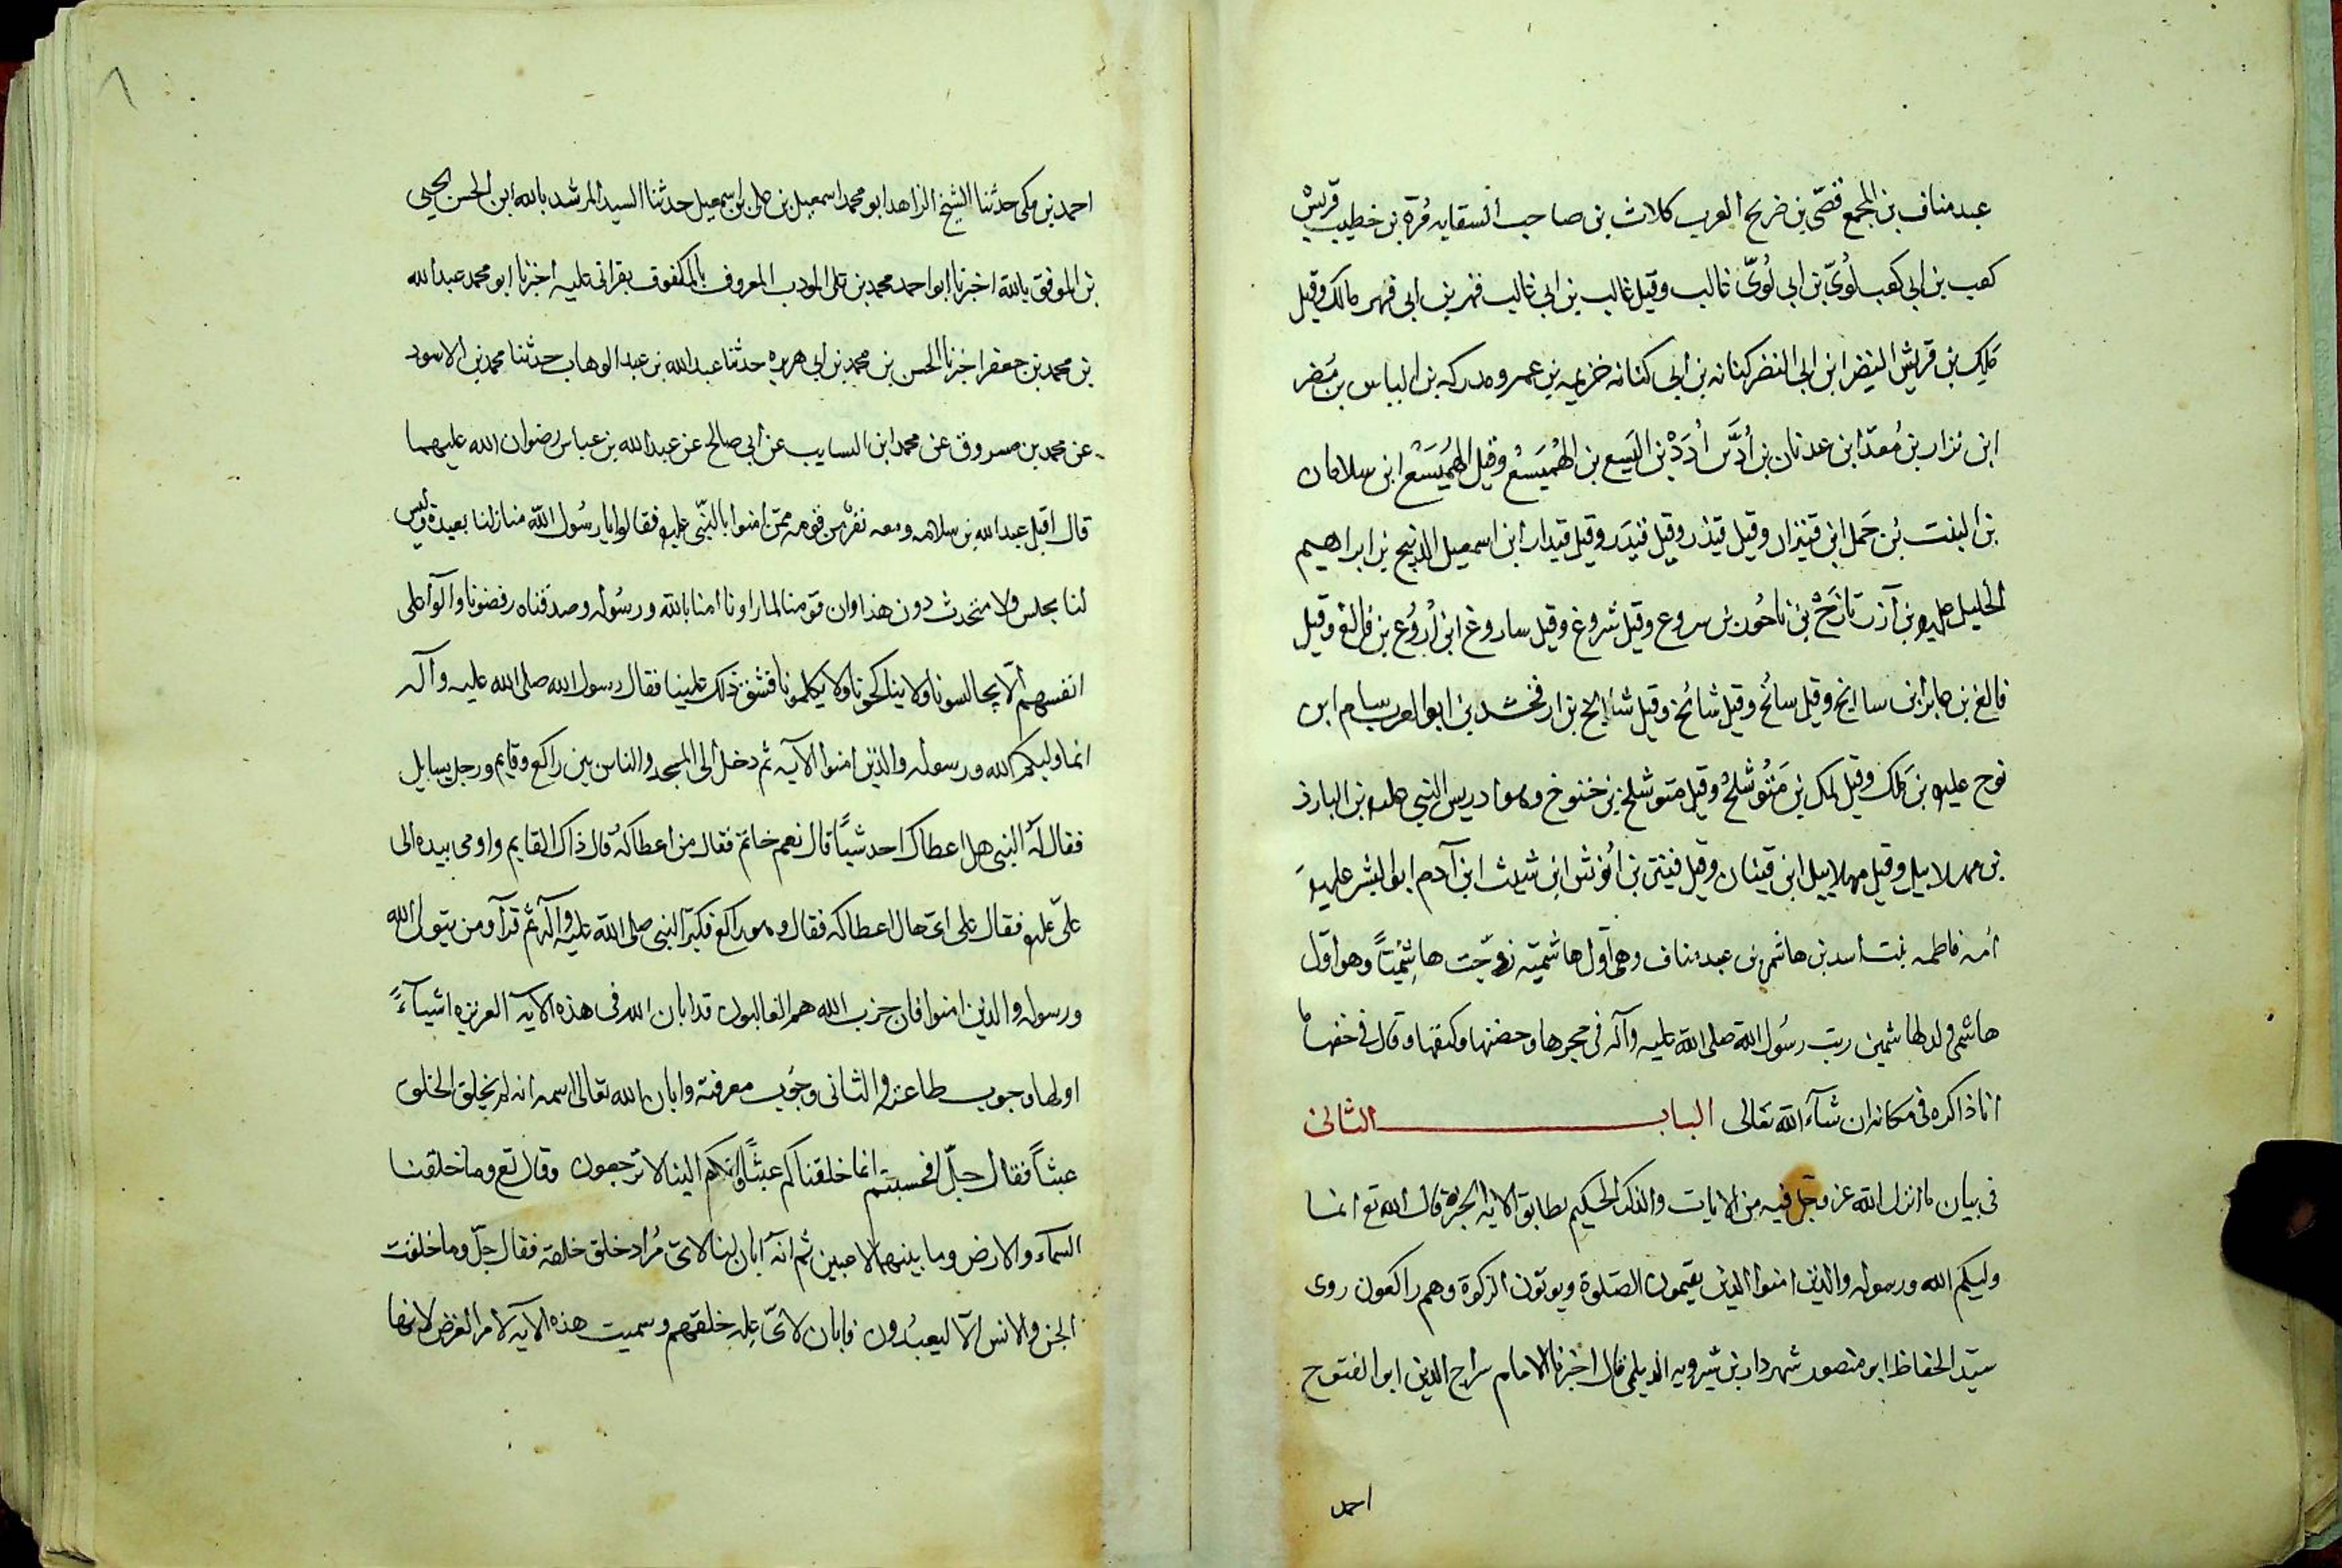 عبد مناف بن المجمع قصّى بن ضريح العرب كلاب بن صاحب السقايه مُرّة بن خطيب قريش
كعب بن ابى كعب لوُىّ بن ابى لوُىّ غالب وقيل غالب بن ابى غالب فهر بن ابى فهر مالك وقيل
مَلِك بن قريش النضر ابن ابى النضر كنانه بن ابى كنانه خزيمه بن عمرو مدركه بن الياس بن مُضر
ابن نزار بن مُعدّ ابن عدنان بن اُدّ بن اُدَدْ بن اليَسع بن الهُمَيسَعُ وقيل الهَمَيْسَعُ ابن سلامان
بن البنت بُن حَمل ابن قينزار وقيل قيذر وقيل قيدَر وقيل قيدار ابن اسمعيل الذبيح بن ابراهيم
الخليل عليه بن آزر تازَخْ بن ناحُور بن سروع وقيل شروغ وقيل ساروغ ابن اُرْوُع بن فالغ وقيل
فالغ بن عابر ابن سالخ وقيل سالخ وقيل شالخ وقيل شالخ بن ارفخشد بن ابو العرب سام ابن
نوح عليه بن مَلَك وقيل لمك بن مَتُوشلخُ وقيل متوشلخ بن خنوخ وهو ادريس النبى عليه بن البارذ
بن مهلاييل وقيل مهلاييل ابن قينان وقيل قينن بن انُوش ابن شيث ابن آدم ابو البشر عليهَ
اُمه فاطمه بنت اسد بن هاشم بن عبد مناف وهى اول هاشميّه زوّجت هاشِميّاً وهو اوّل
هاشمى ولد لهاشمين ربت رسُول الله صلى الله عليه وآله فى حجرها وحضنها وكنفها وقال فى حقها ما
انا ذاكره فى مكانه ان شآء الله تعَالى البابــــــــــــــالثانى
فى بيان ما انزل الله عز وجل فيه من الايات والذكر الحكيم بطابق الايه قال الله تع انما
وليكم الله ورسوله والذين امنوا الذين يقيمون الصّلوة ويوتون الزكوة وهم راكعون روى
سيّد الحفاظ ابو منصور شهردار بن شيرويه الديلمى قال اخبرنا الامام سراج الدين ابو الفتوح
احمد
احمد بن مكى حدثنا الشيخ الزاهد ابو محمد اسمعيل بن على بن اسمعيل حدثنا السيد المرشد بالله ابن الحسن يحيى
بن الموفق بالله اخبرنا ابو احمد محمد بن على المودب المعروف بالمكفوف بقراتى عليه اخبرنا ابو محمد عبد الله
بن محمد بن جعفر اخبرنا الحسن بن محمد بن ابى هريره حدثنا عبد الله بن عبد الوهاب حدثنا محمد بن الاسود
عن محمد بن مسروق عن محمد ابن السايب عن ابى صالح عن عبد الله بن عباس رضوان الله عليهما
قال اقبل عبد الله بن سلام ومعه نفر من قومه ممّن امنوا بالنّبى عليه فقالوا يا رسُول الله منازلنا بعيدة وليس
لنا مجلس ولا متحدث دون هذا وان قومنا لما راونا امنا بالله ورسُوله وصدقناه رفضونا وآلوا على
انفسهم الّا يجالسونا ولا يناكحونا ولا يكلمونا فشق ذلك علينا فقال رسول الله صلى الله عليه وآله
انما وليكم الله ورسوله والذين امنوا الآيه ثم دخل الى المسجد والناس بين راكع وقايم ورجل يسايل
فقال لهُ النبى هل اعطاك احد شيًا قال نعم خاتم فقال من اعطاكهُ قال ذاك القايم واومى بيده الى
علىّ عليه فقال على اىّ حال اعطاكه فقال وهو راكع فكبّر النبى صلى الله عليه وآله ثم قرا ومن يتول الله
ورسوله والذين امنوا فان حزب الله هم الغالبون قد ابان الله فى هذه الآيه العزيزه اشيآءً
اولها وجوب طاعته والثانى وجُوب معرفته وابان الله تعالى اسمه انه لم يخلق الخلق
عبثاً فقال جلّ افحسبتم انما خلقناكم عبثًا وانكم الينا لا ترجعون وقال تع وما خلقنا
السمآء والارض وما بينهما لاعبين ثم انّه ابان لنا لاىّ مُراد خلق خلقه فقال جلّ وما خلقت
الجن والانس الّا ليعبُدون فابان لاىّ عِله خلقهم وسميت هذه الآيه لامر الغرض لانها